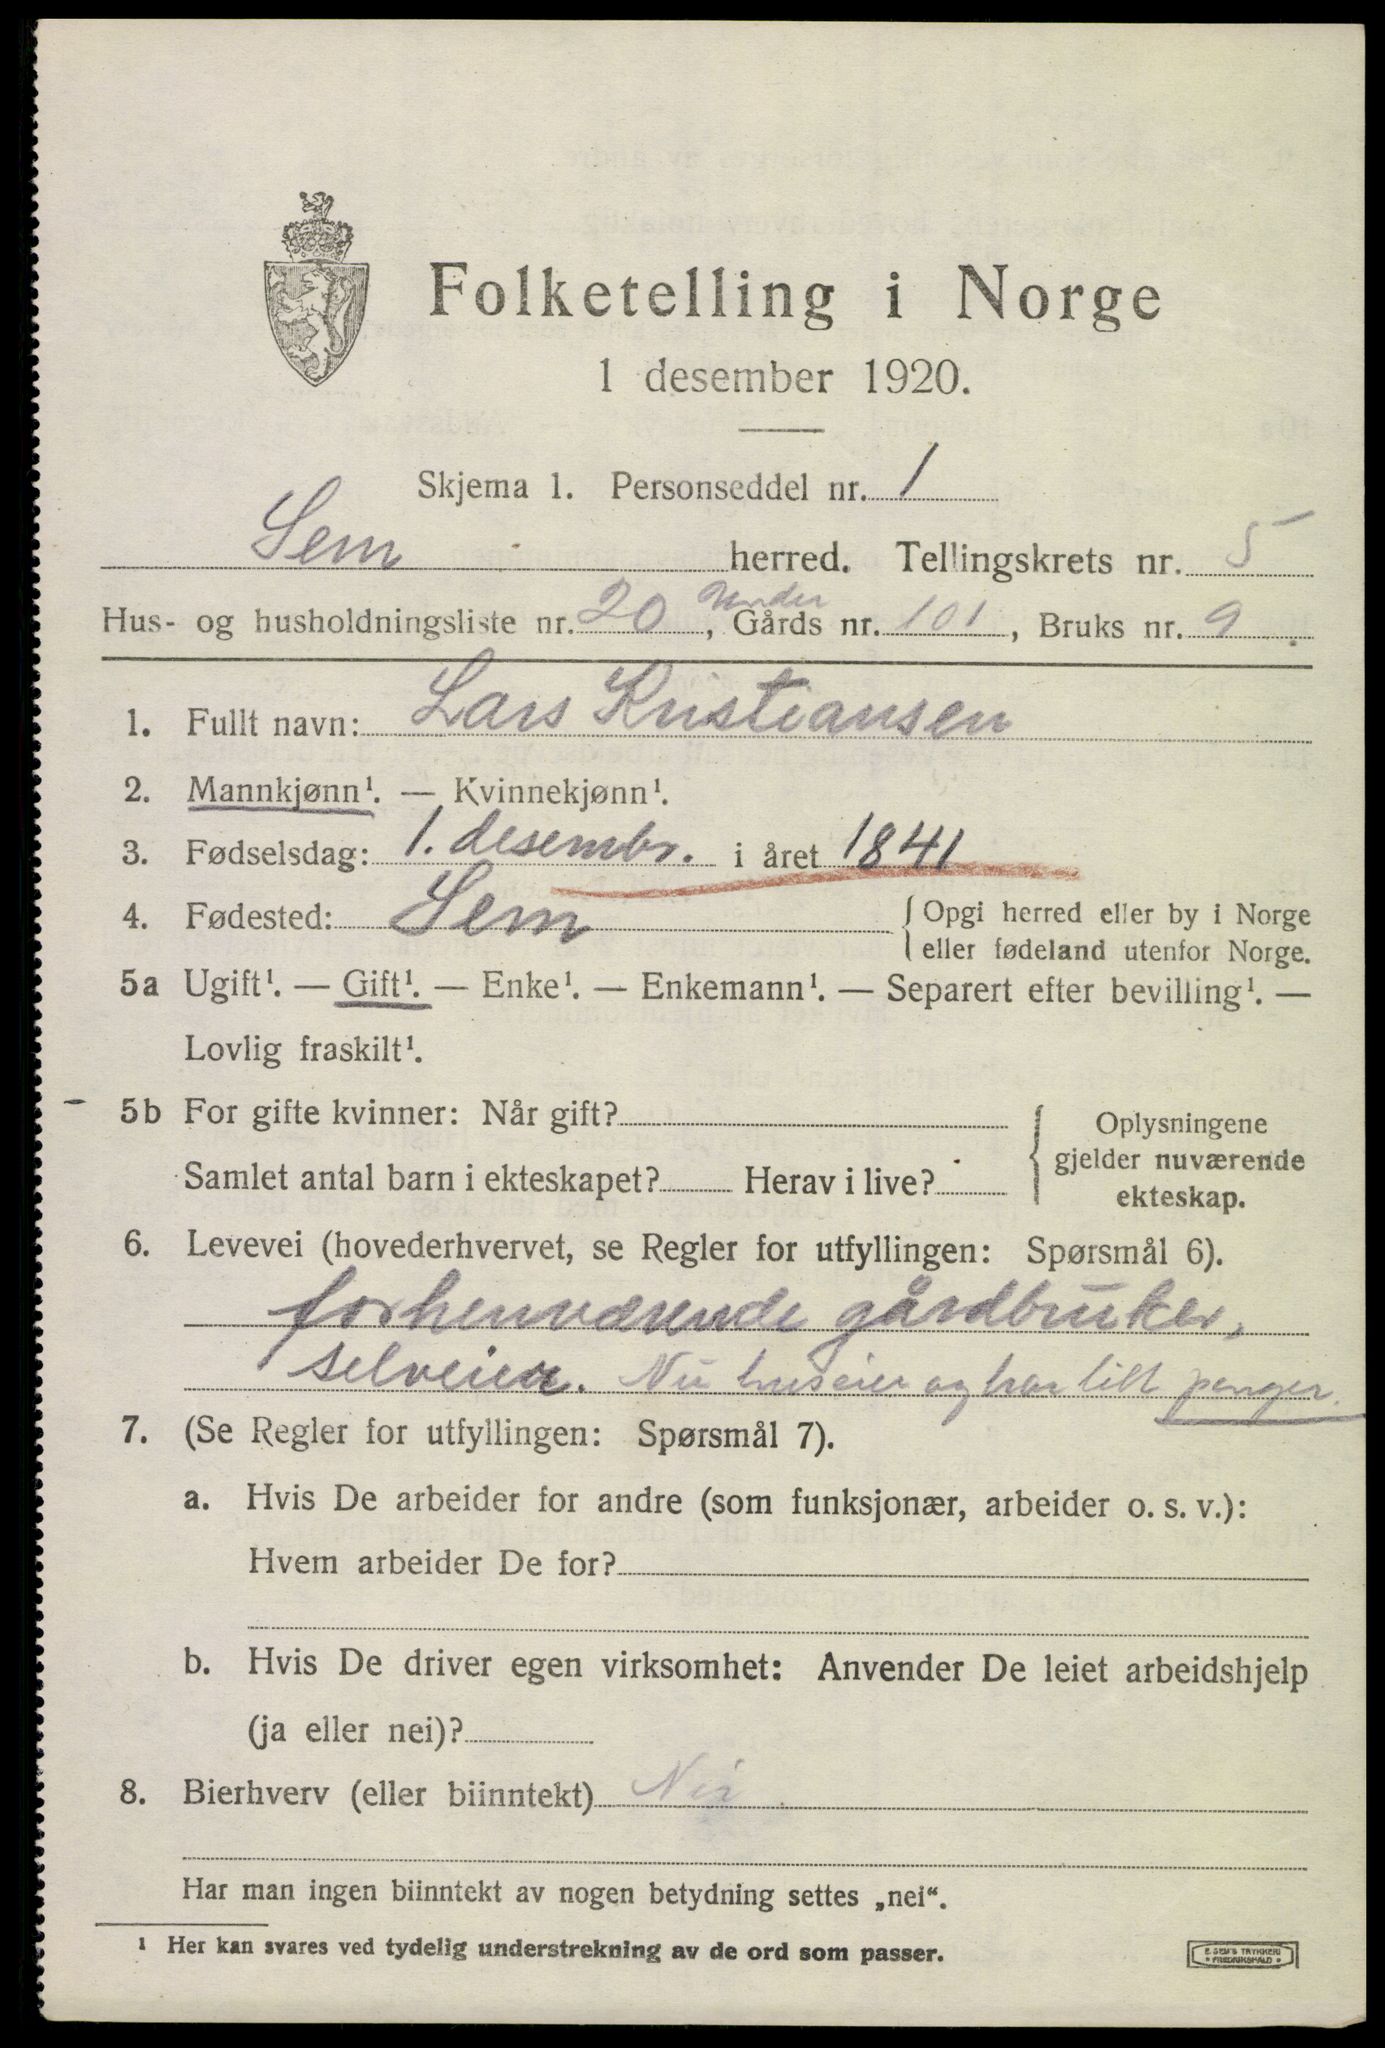 Folketelling i Norge
1 desember 1920.
Skjema 1. Personseddel nr. 1
Sem herred. Tellingskrets nr. 5
Hus- og husholdningsliste nr. 20, under Gårds nr. 101, Bruks nr. 9.
1. Fullt navn: Lars Kristiansen
2. Mannkjønn¹. — Kvinnekjønn¹.
3. Fødselsdag: 1. desembr. i året 1841
4. Fødested: Sem { Opgi herred eller by i Norge
eller fødeland utenfor Norge.
5a Ugift¹. — Gift¹. — Enke¹. — Enkemann¹. — Separert efter bevilling¹. —
Lovlig fraskilt¹.
5b For gifte kvinner: Når gift?
Samlet antal barn i ekteskapet? Herav i live?
{ Oplysningene
gjelder nuværende
ekteskap.
6. Levevei (hovederhvervet, se Regler for utfyllingen: Spørsmål 6).
forhenværende gårdbruker,
selveier. Nu huseier og har litt penger.
7. (Se Regler for utfyllingen: Spørsmål 7).
a. Hvis De arbeider for andre (som funksjonær, arbeider o. s. v.):
Hvem arbeider De for?
b. Hvis De driver egen virksomhet: Anvender De leiet arbeidshjelp
(ja eller nei)?
8. Bierhverv (eller biinntekt) Nei
Har man ingen biinntekt av nogen betydning settes „nei“.
¹ Her kan svares ved tydelig understrekning av de ord som passer.
E. SEM'S TRYKKERI
* FREDRIKSHALD *